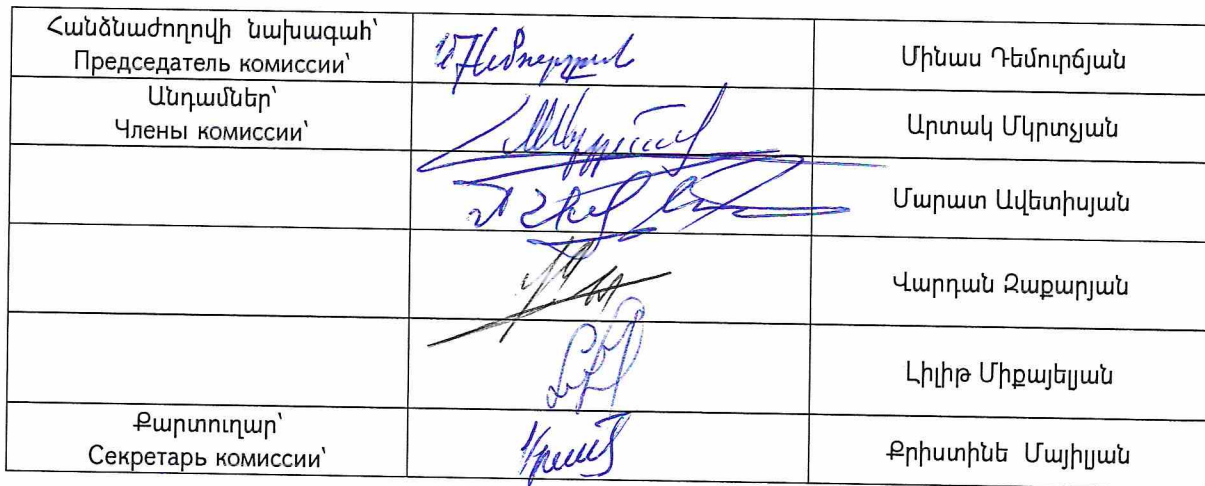 Հանձնաժողովի նախագահ՝
Председатель комиссии՝
Մինաս Դեմուրճյան
Անդամներ՝
Члены комиссии՝
Արտակ Մկրտչյան
Մարատ Ավետիսյան
Վարդան Զաքարյան
Լիլիթ Միքայելյան
Քարտուղար՝
Секретарь комиссии՝
Քրիստինե Մայիլյան